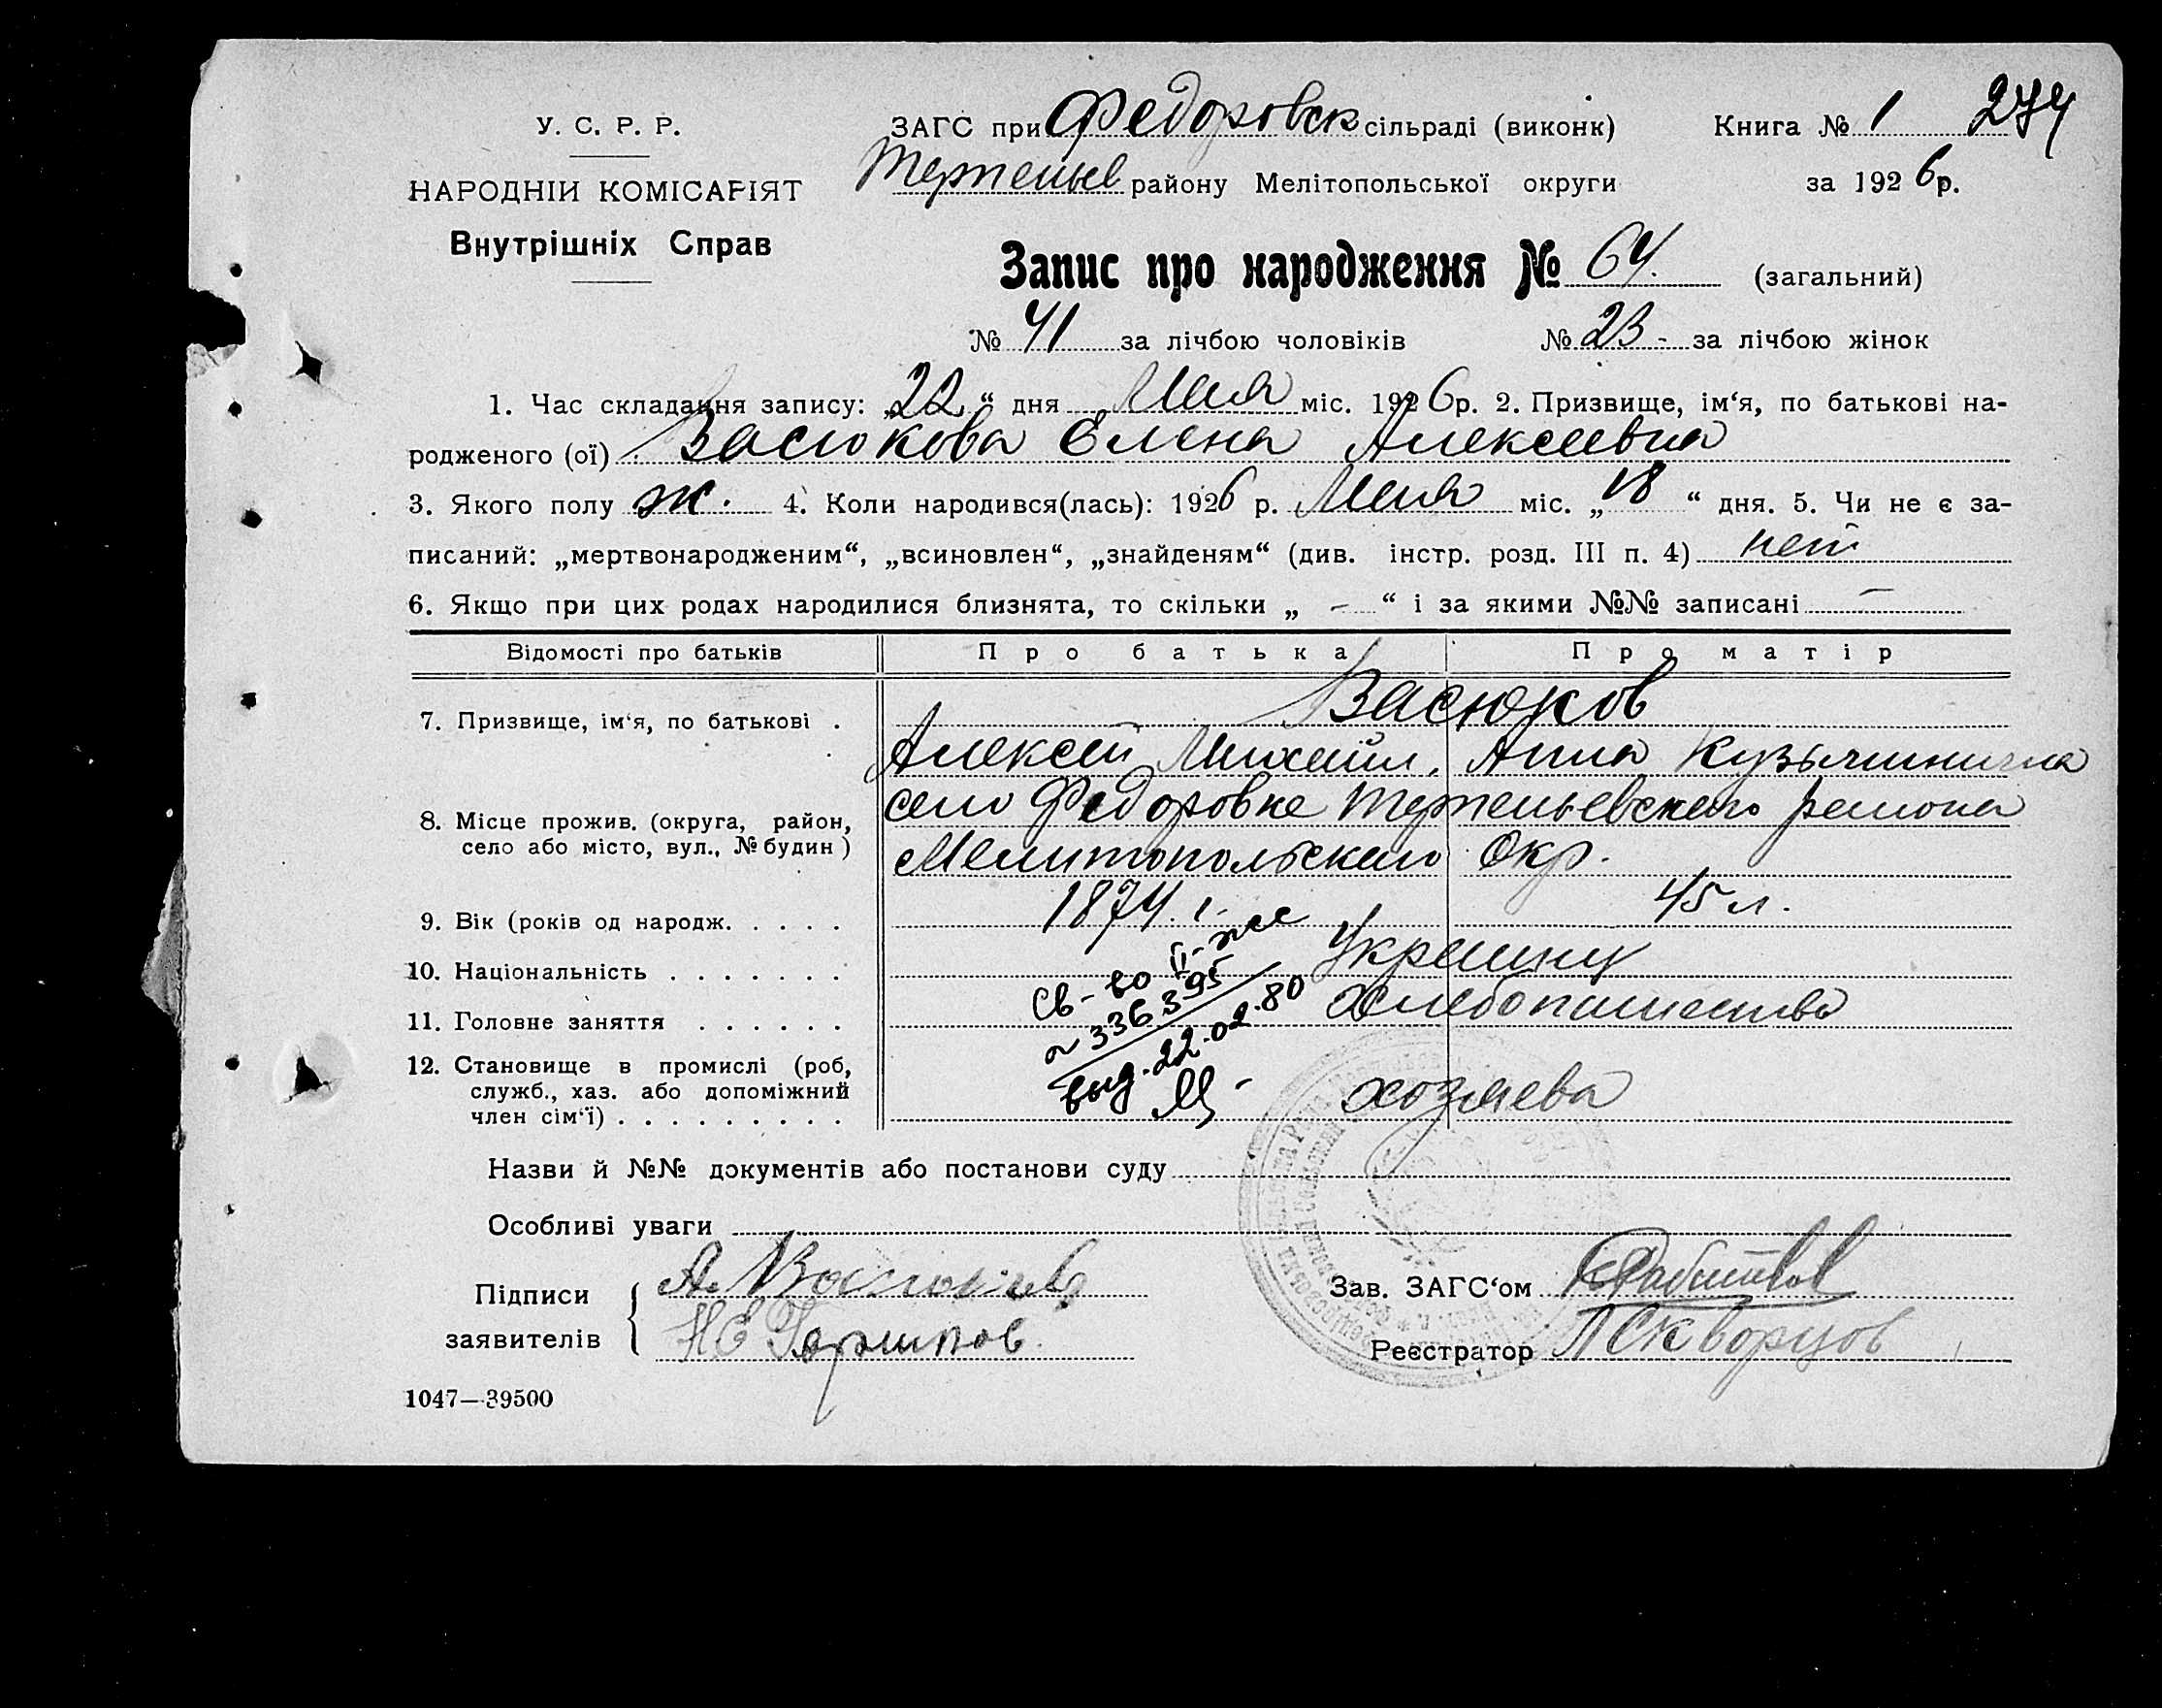 У. С. Р. Р.
НАРОДНІЙ КОМІСАРІЯТ
Внутрішніх Справ
ЗАГС при Федоровск сільраді (виконк) Книга № 1 274
Тертеньев району Мелітопольської округи за 1926р.
Запис про народження № 64. (загальний)
№ 41 за лічбою чоловіків № 23 - за лічбою жінок
1. Час складання запису: „22“ дня Мая міс. 1926р. 2. Призвище, ім‘я, по батькові на-
родженого (ої) Васюкова Елена Алексеевна
3. Якого полу ж. 4. Коли народився(лась): 1926 р. Мая міс. „18“ дня. 5. Чи не є за-
писаний: „мертвонародженим“, „всиновлен“, „знайденям“ (див. інстр. розд. III п. 4) нет
6. Якщо при цих родах народилися близнята, то скільки „ - “ і за якими №№ записані -
Відомості про батьків Про батька Про матір
7. Призвище, ім‘я, по батькові . Васюков
Алексей Михайл. Анна Кузьминична
8. Місце прожив. (округа, район, село Федоровке Тертеньевского района
село або місто, вул., № будин) Мелитопольского Окр.
9. Вік (років од народж. . . . . 1874 г. 45 л.
10. Національність . . . . . . . Украинц
11. Головне заняття . . . . . . хлебопашество
12. Становище в промислі (роб,
служб., хаз. або допоміжний
член сім‘ї) . . . . . . . . . хозяева
Св-во II-же
№ 336395
выд. 22.02.80
Назви й №№ документів або постанови суду
Особливі уваги
Підписи А. Васюков Зав. ЗАГС‘ом
заявителів Н Е Реєстратор П Скворцов
1047—39500